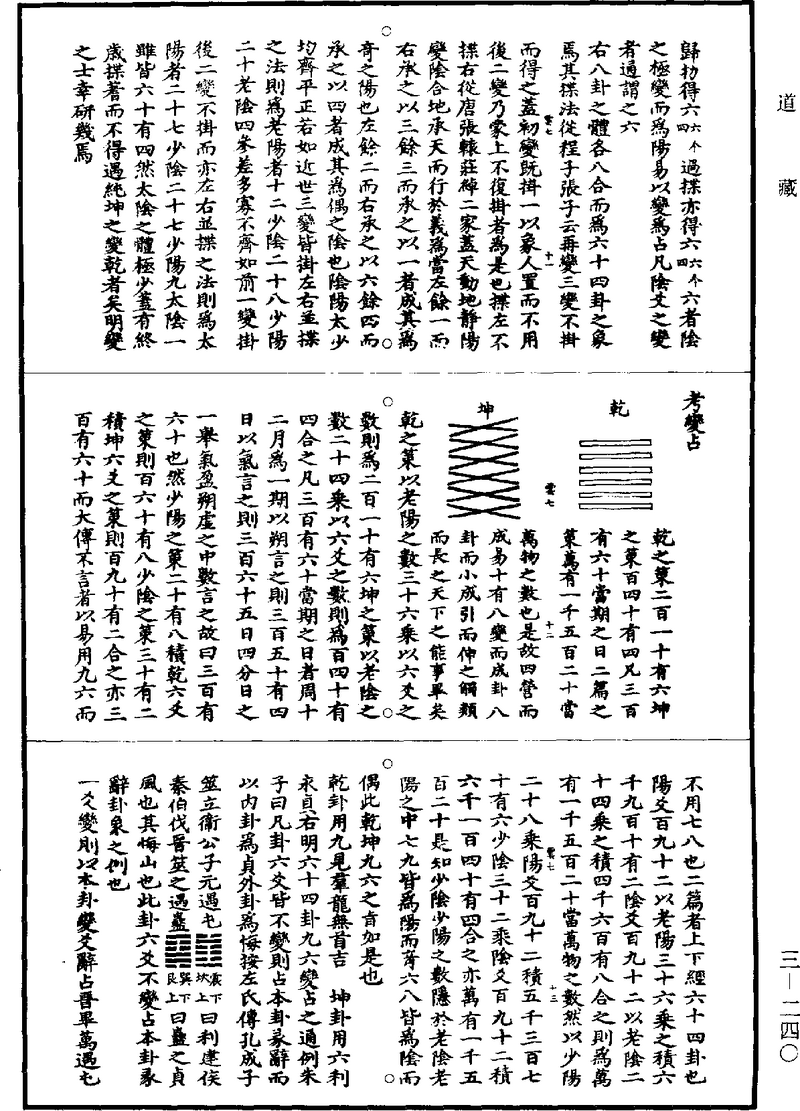 道藏
歸扐得六四六个過揲亦得六四六个六者陰
之極變而爲陽易以變爲占凡陰爻之變
者通謂之六
右八卦之體各八合而爲六十四卦之象
焉其揲法從程子張子云再變三變不掛
而得之蓋初變旣掛一以象人置而不用
後二變乃蒙上不復掛者爲是也揲左不
揲右從唐張轅莊綽二家蓋天動地靜陽
變陰合地承天而行於義爲當左餘一而
右承之以三餘三而承之以一者成其爲
奇之陽也左餘二而右承之以六餘四而
承之以四者成其爲偶之陰也陰陽太少
均齊平正若如近世三變皆掛左右並揲
之法則爲老陽者十二少陰二十八少陽
二十老陰四參差多寡不齊如前一變掛
後二變不掛而亦左右並揲之法則爲太
陽者二十七少陰二十七少陽九太陰一
雖皆六十有四然太陰之體極少蓋有終
歲揲蓍而不得遇純坤之變乾者矣明變
之士幸研幾焉
雲七
十一
考變占
乾
坤
乾之策二百一十有六坤
之策百四十有四凡三百
有六十當期之日二篇之
策萬有一千五百二十當
萬物之數也是故四營而
成易十有八變而成卦八
卦而小成引而伸之觸類
而長之天下之能事畢矣
乾之策以老陽之數三十六乘以六爻之
數則爲二百一十有六坤之策以老陰之
數二十四乘以六爻之數則爲百四十有
四合之凡三百有六十當期之日者周十
二月爲一期以朔言之則三百五十有四
日以氣言之則三百六十五日四分日之
一舉氣盈朔虛之中數言之故曰三百有
六十也然少陽之策二十有八積乾六爻
之策則百六十有八少陰之策三十有二
積坤六爻之策則百九十有二合之亦三
百有六十而大傳不言者以易用九六而
雲七
十二
不用七八也二篇者上下經六十四卦也
陽爻百九十二以老陽三十六乘之積六
千九百十有二陰爻百九十二以老陰二
十四乘之積四千六百有八合之則爲萬
有一千五百二十當萬物之數然以少陽
二十八乘陽爻百九十二積五千三百七
十有六少陰三十二乘陰爻百九十二積
六千一百四十有四合之亦萬有一千五
百二十是知少陰少陽之數隱於老陰老
陽之中七九皆爲陽而奇六八皆爲陰而
偶此乾坤九六之旨如是也
乾卦用九見羣龍無首吉　坤卦用六利
永貞右明六十四卦九六變占之通例朱
子曰凡卦六爻皆不變則占本卦彖辭而
以内卦爲貞外卦爲悔按左氏傳孔成子
筮立衞公子元遇屯震下坎上曰利建侯
秦伯伐晉筮之遇蠱巽下艮上曰蠱之貞
風也其悔山也此卦六爻不變占本卦彖
辭卦象之例也
一爻變則以本卦變爻辭占晉畢萬遇屯
雲七
十三
三—二四〇